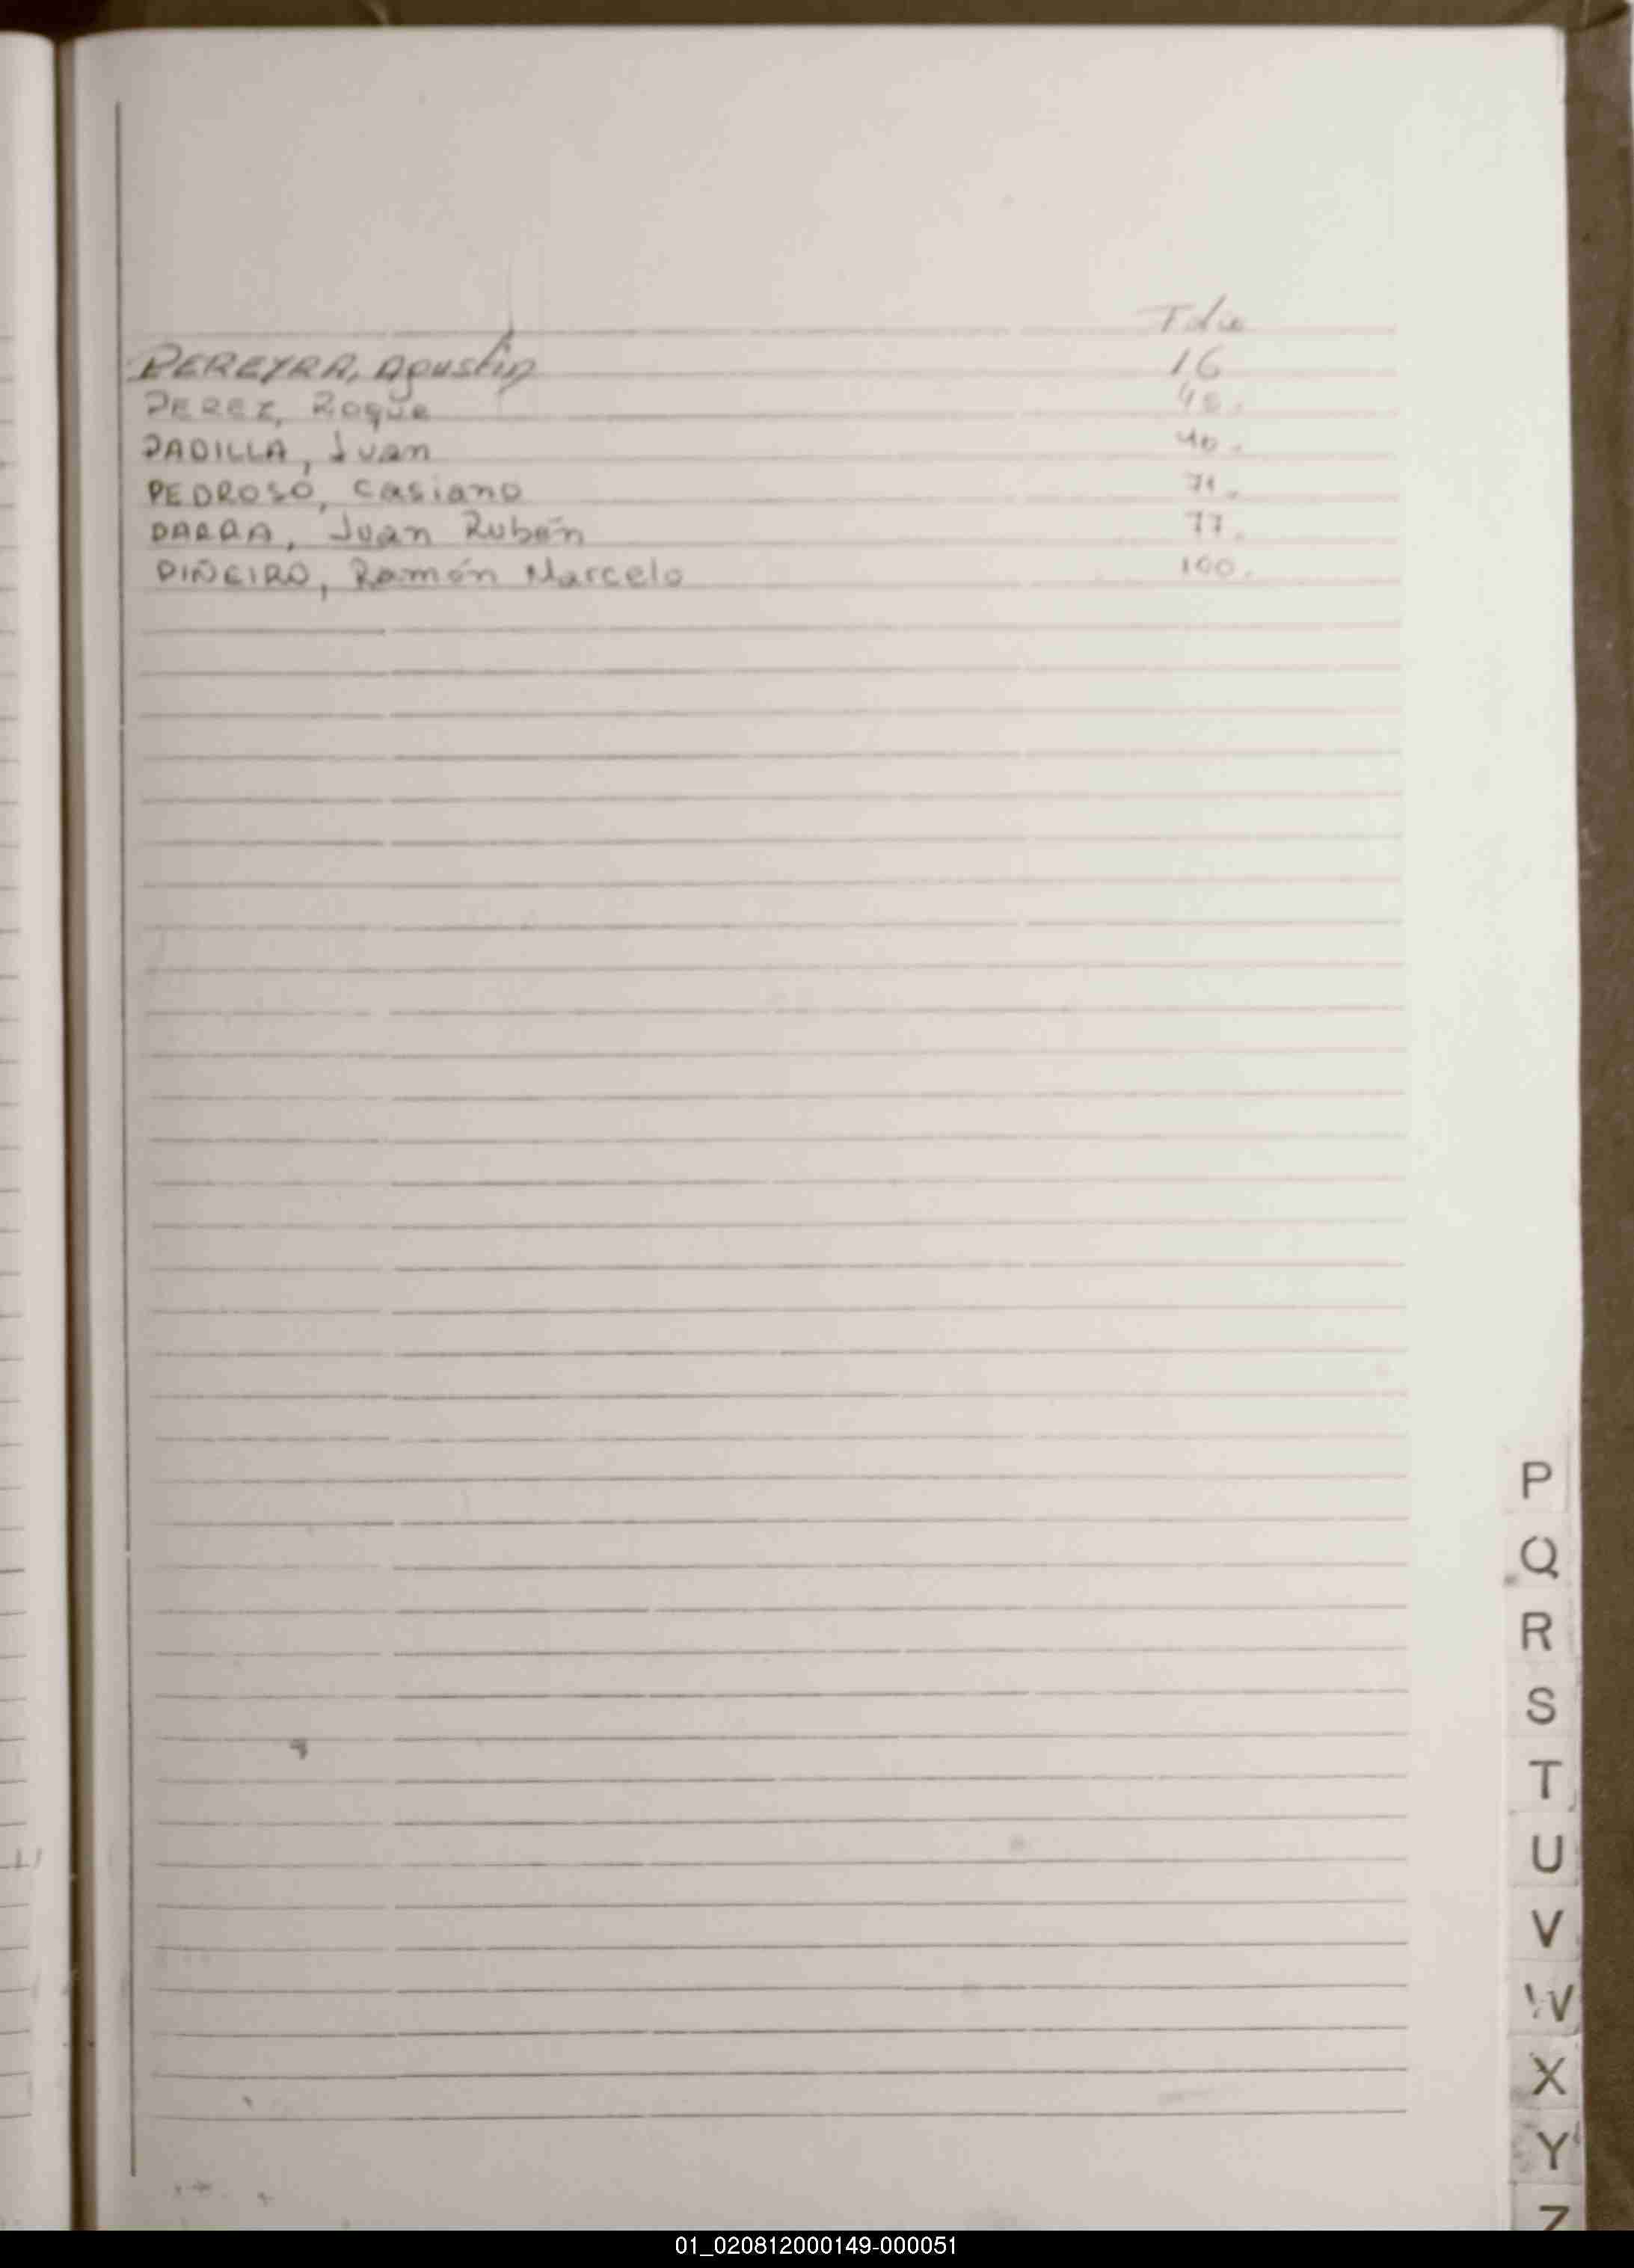 Folio
PEREYRA, Agustín 16
PEREZ, Roque
PADILLA, Juan 40.
PEDROSO, Casiano 71.
PARRA, Juan Rubén 77.
PIÑEIRO, Ramón Marcelo 100.
P
Q
R
S
T
U
V
W
X
Y
Z
01_020812000149-000051